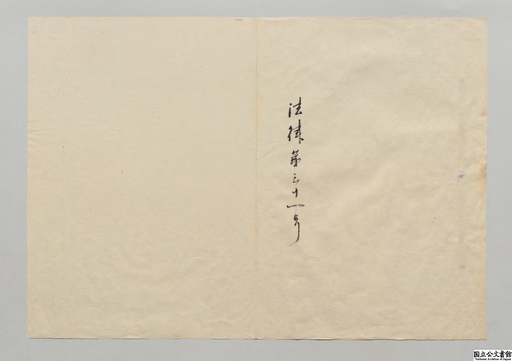 法律第三十一号
国立公文書館
National Archives of Japan